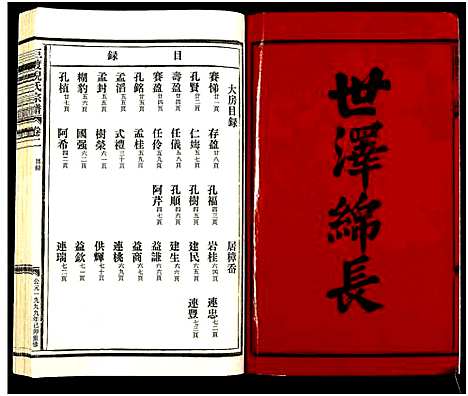 世澤綿長
目錄
大房目錄
賽悌 廿一頁
存盈 廿八頁
孔福 三三頁
居樟畓
孔賢 二二頁
仁海 四五頁
孔樹 四五頁
岩桂 六四頁
連忠 七二頁
壽盈
任儀 五一頁
孔順 六二頁
建民 六五頁
連豐 七三頁
賽盈
任伶 五五頁
阿芹 四七頁
建生 六六頁
孔銘
孟桂 五九頁
益謙 六七頁
孟滔 五五頁
式禮 三十頁
益商 六九頁
孟封 五五頁
樹榮 六一頁
連桃 六九頁
糊豹 五六頁
國强 六二頁
供輝 七十頁
孔植 廿七頁
阿希 四二頁
益欽 七一頁
連瑞 七二頁
倪氏宗譜 卷二 目錄
公元一九九九年己卯重修